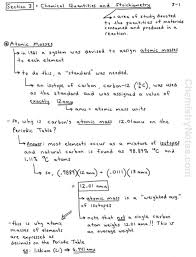 Section 3 - Chemical Quantities and Stoichiometry
3-1
→ area of study devoted
to the quantities of materials
consumed and produced in a
reaction.
Atomic Masses
→ in 1961 a system was devised to assign atomic masses
to each element
→ to do this, a "standard" was needed.
→ an isotope of carbon, carbon-12 (12/6 C), was used
as the standard and was assigned a value of
exactly 12 amu
→ amu = atomic mass units
→ So, why is carbon's atomic mass = 12.01 amu on
the Periodic Table?
→ Answer: most elements occur as a mixture of isotopes
and natural carbon is found as 98.89% 12C and
1.11% 13C atoms
→ So, (.9889)(12 amu) + (.0111)(13 amu)
= 12.01 amu
→ atomic mass is a "weighted avg."
of isotopes
→ note that not a single carbon
atom weighs 12.01 amu!! This is
an average weight
→ this is why atomic
masses of elements
are expressed as
decimals on the Periodic Table.
ex: Lithium (Li) → 6.941 amu
ChemistryNotes.com